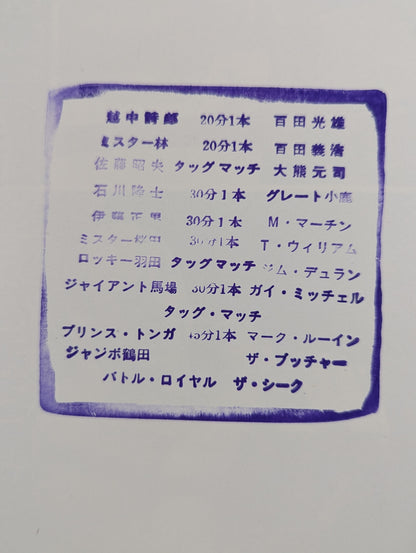 越中詩郎 20分1本 百田光雄
ミスター林 20分1本 百田義浩
佐藤昭夫 タッグマッチ 大熊元司
石川隆士 30分1本 グレート小鹿
伊藤正男 30分1本 M・マーチン
ミスター桜田 30分1本 T・ウィリアム
ロッキー羽田 タッグマッチ ジム・デュラン
ジャイアント馬場 30分1本 ガイ・ミッチェル
タッグ・マッチ
プリンス・トンガ 45分1本 マーク・ルーイン
ジャンボ鶴田 ザ・ブッチャー
バトル・ロイヤル ザ・シーク